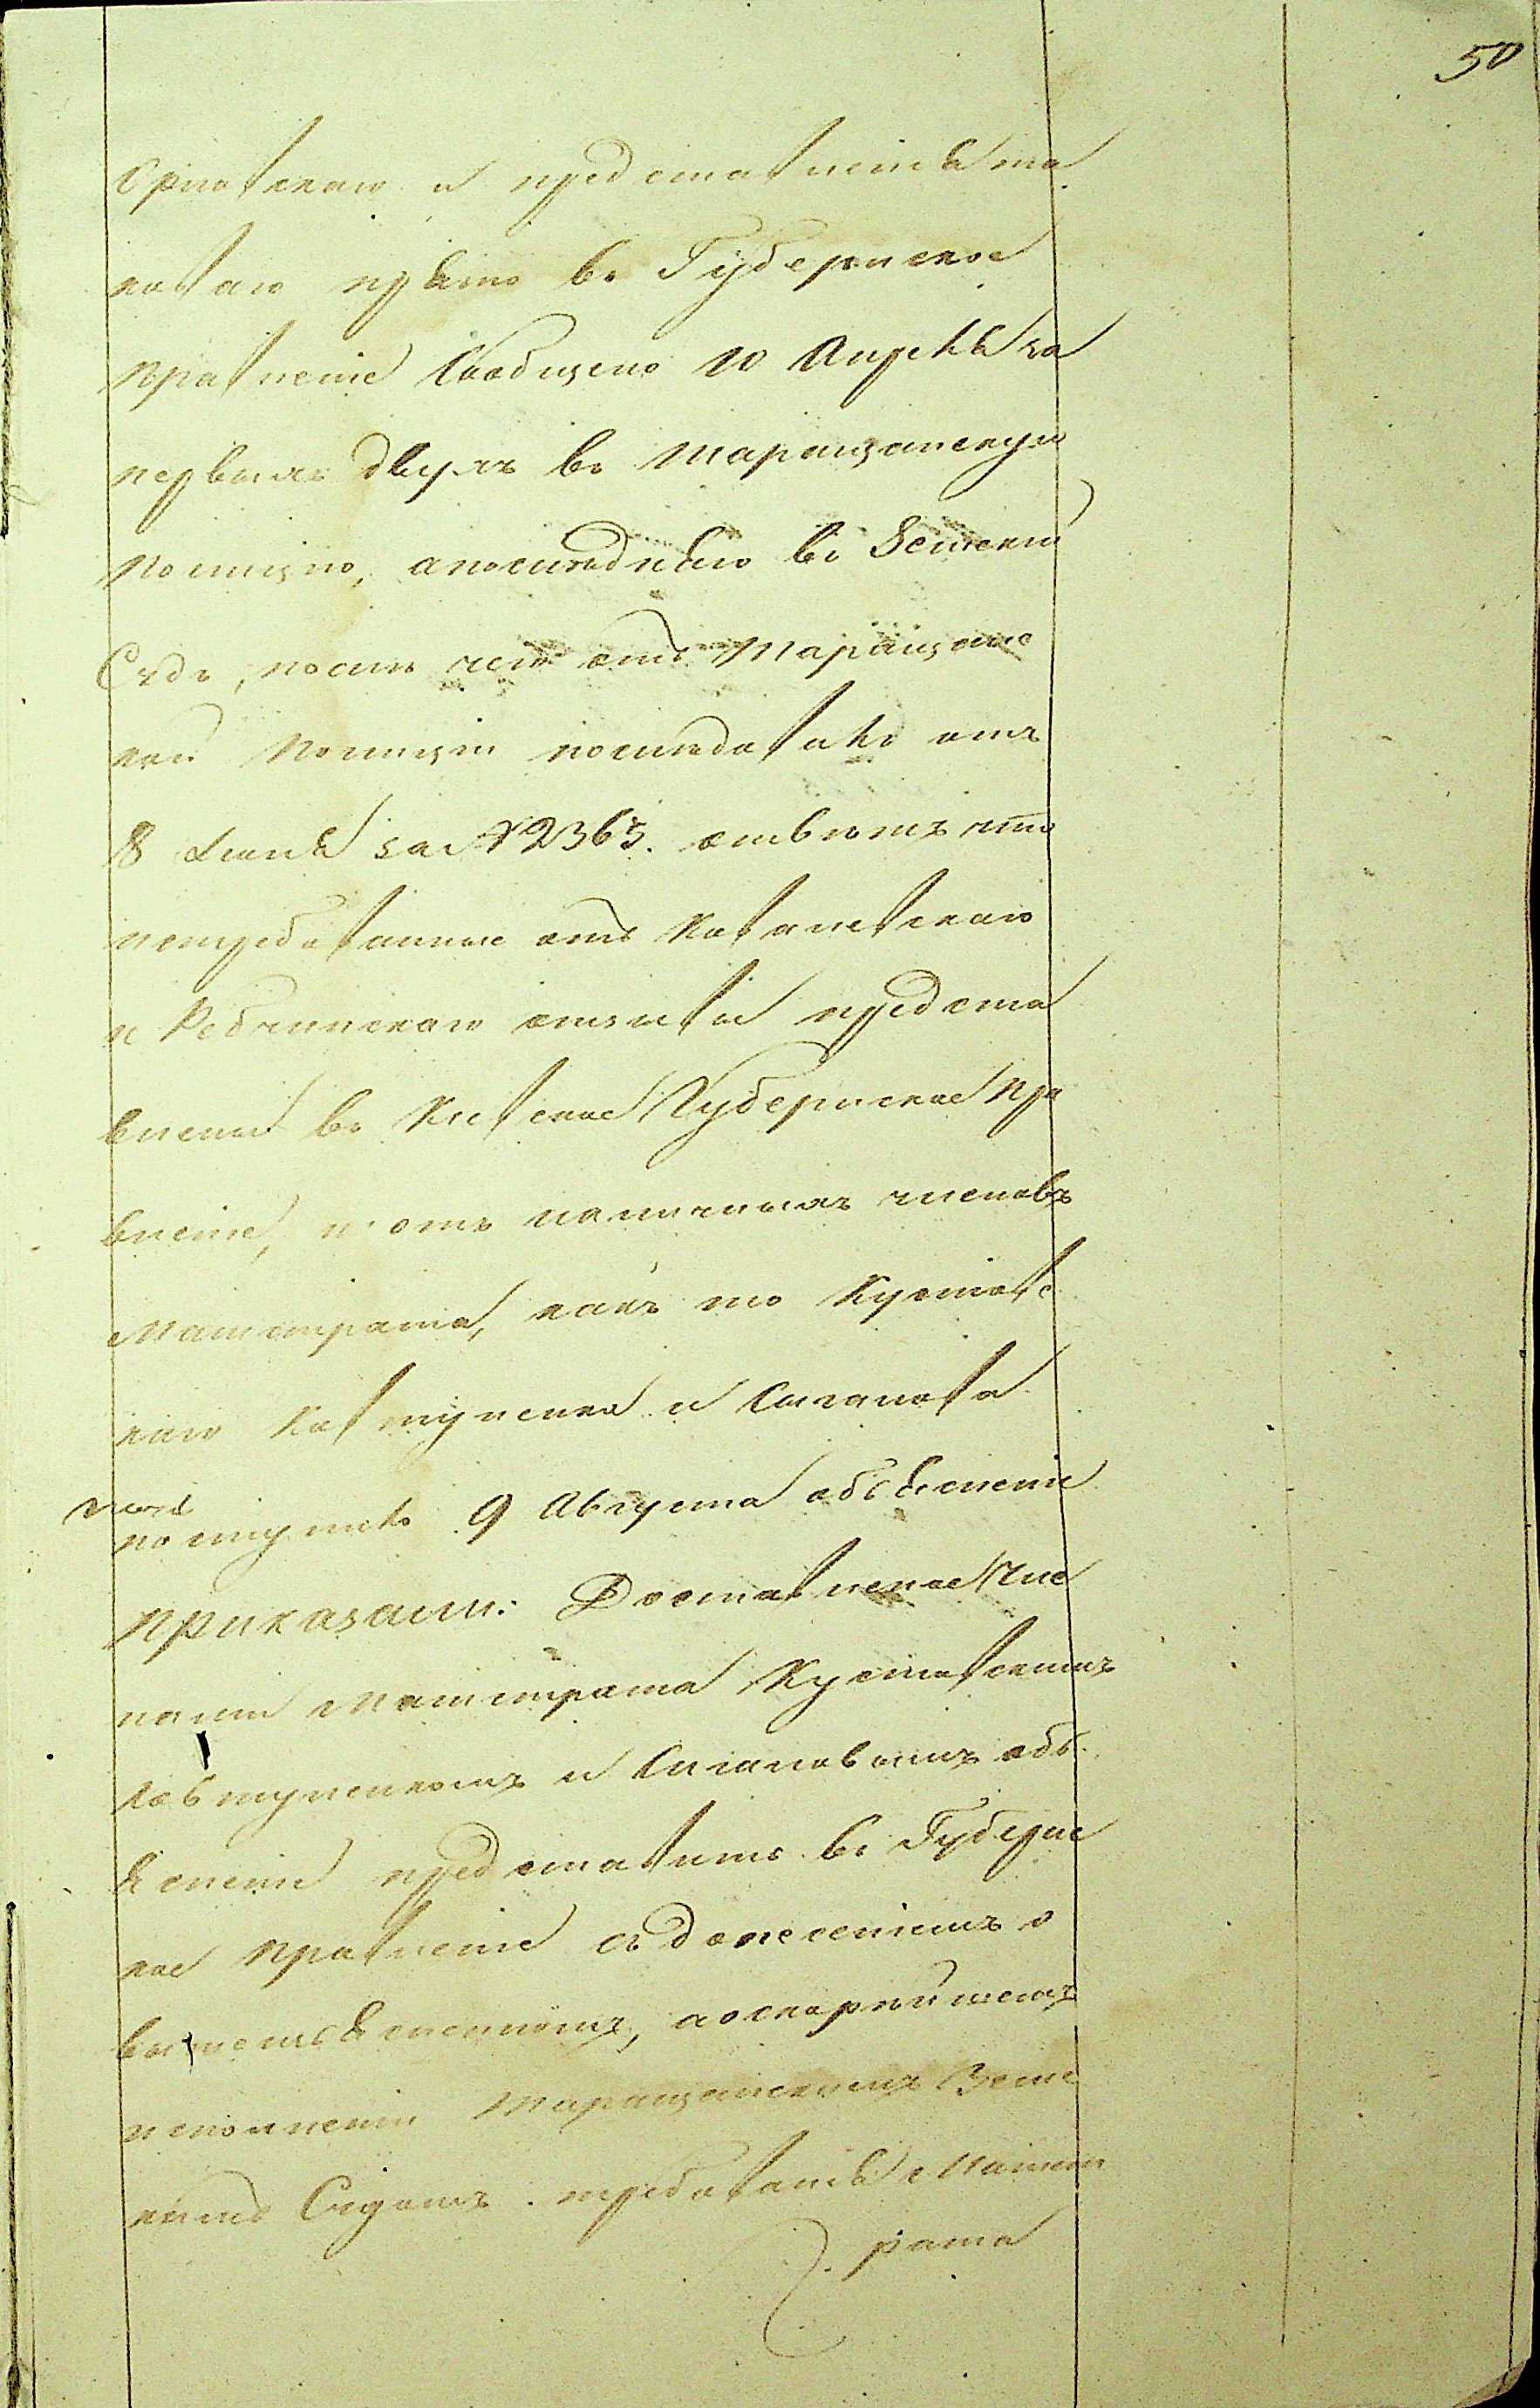 50
Орловскаго и представленія та
коваго прямо въ Губернское
Правленіе Сообщено 10 Апреля за
первыхъ двухъ въ Таращанскую
Полицію, а последняго въ Земскій
Судъ, после чего отъ Таращанс
кой Полиціи последовалъ отъ
8 Іюня за № 2365. ответъ что
истребованные отъ
и отзывы предста
влены въ Киевское Губернское Пра
вленіе, и отъ наличныхъ членовъ
Магистрата, какъ то Кустовс
каго Ковтуненка и Сиганова
поступило 9 Августа объясненіе
Приказали: Доставленное Чле
нами Магистрата Кустовскимъ
Ковтуненкомъ и Сигановымъ объ
ясненіе представить въ Губернс
кое Правленіе съ донесеніемъ о
вышеизъясненномъ, а о скорейшемъ
исполненіи Таращанскимъ Земс
кимъ Судомъ требованія Магист
рата